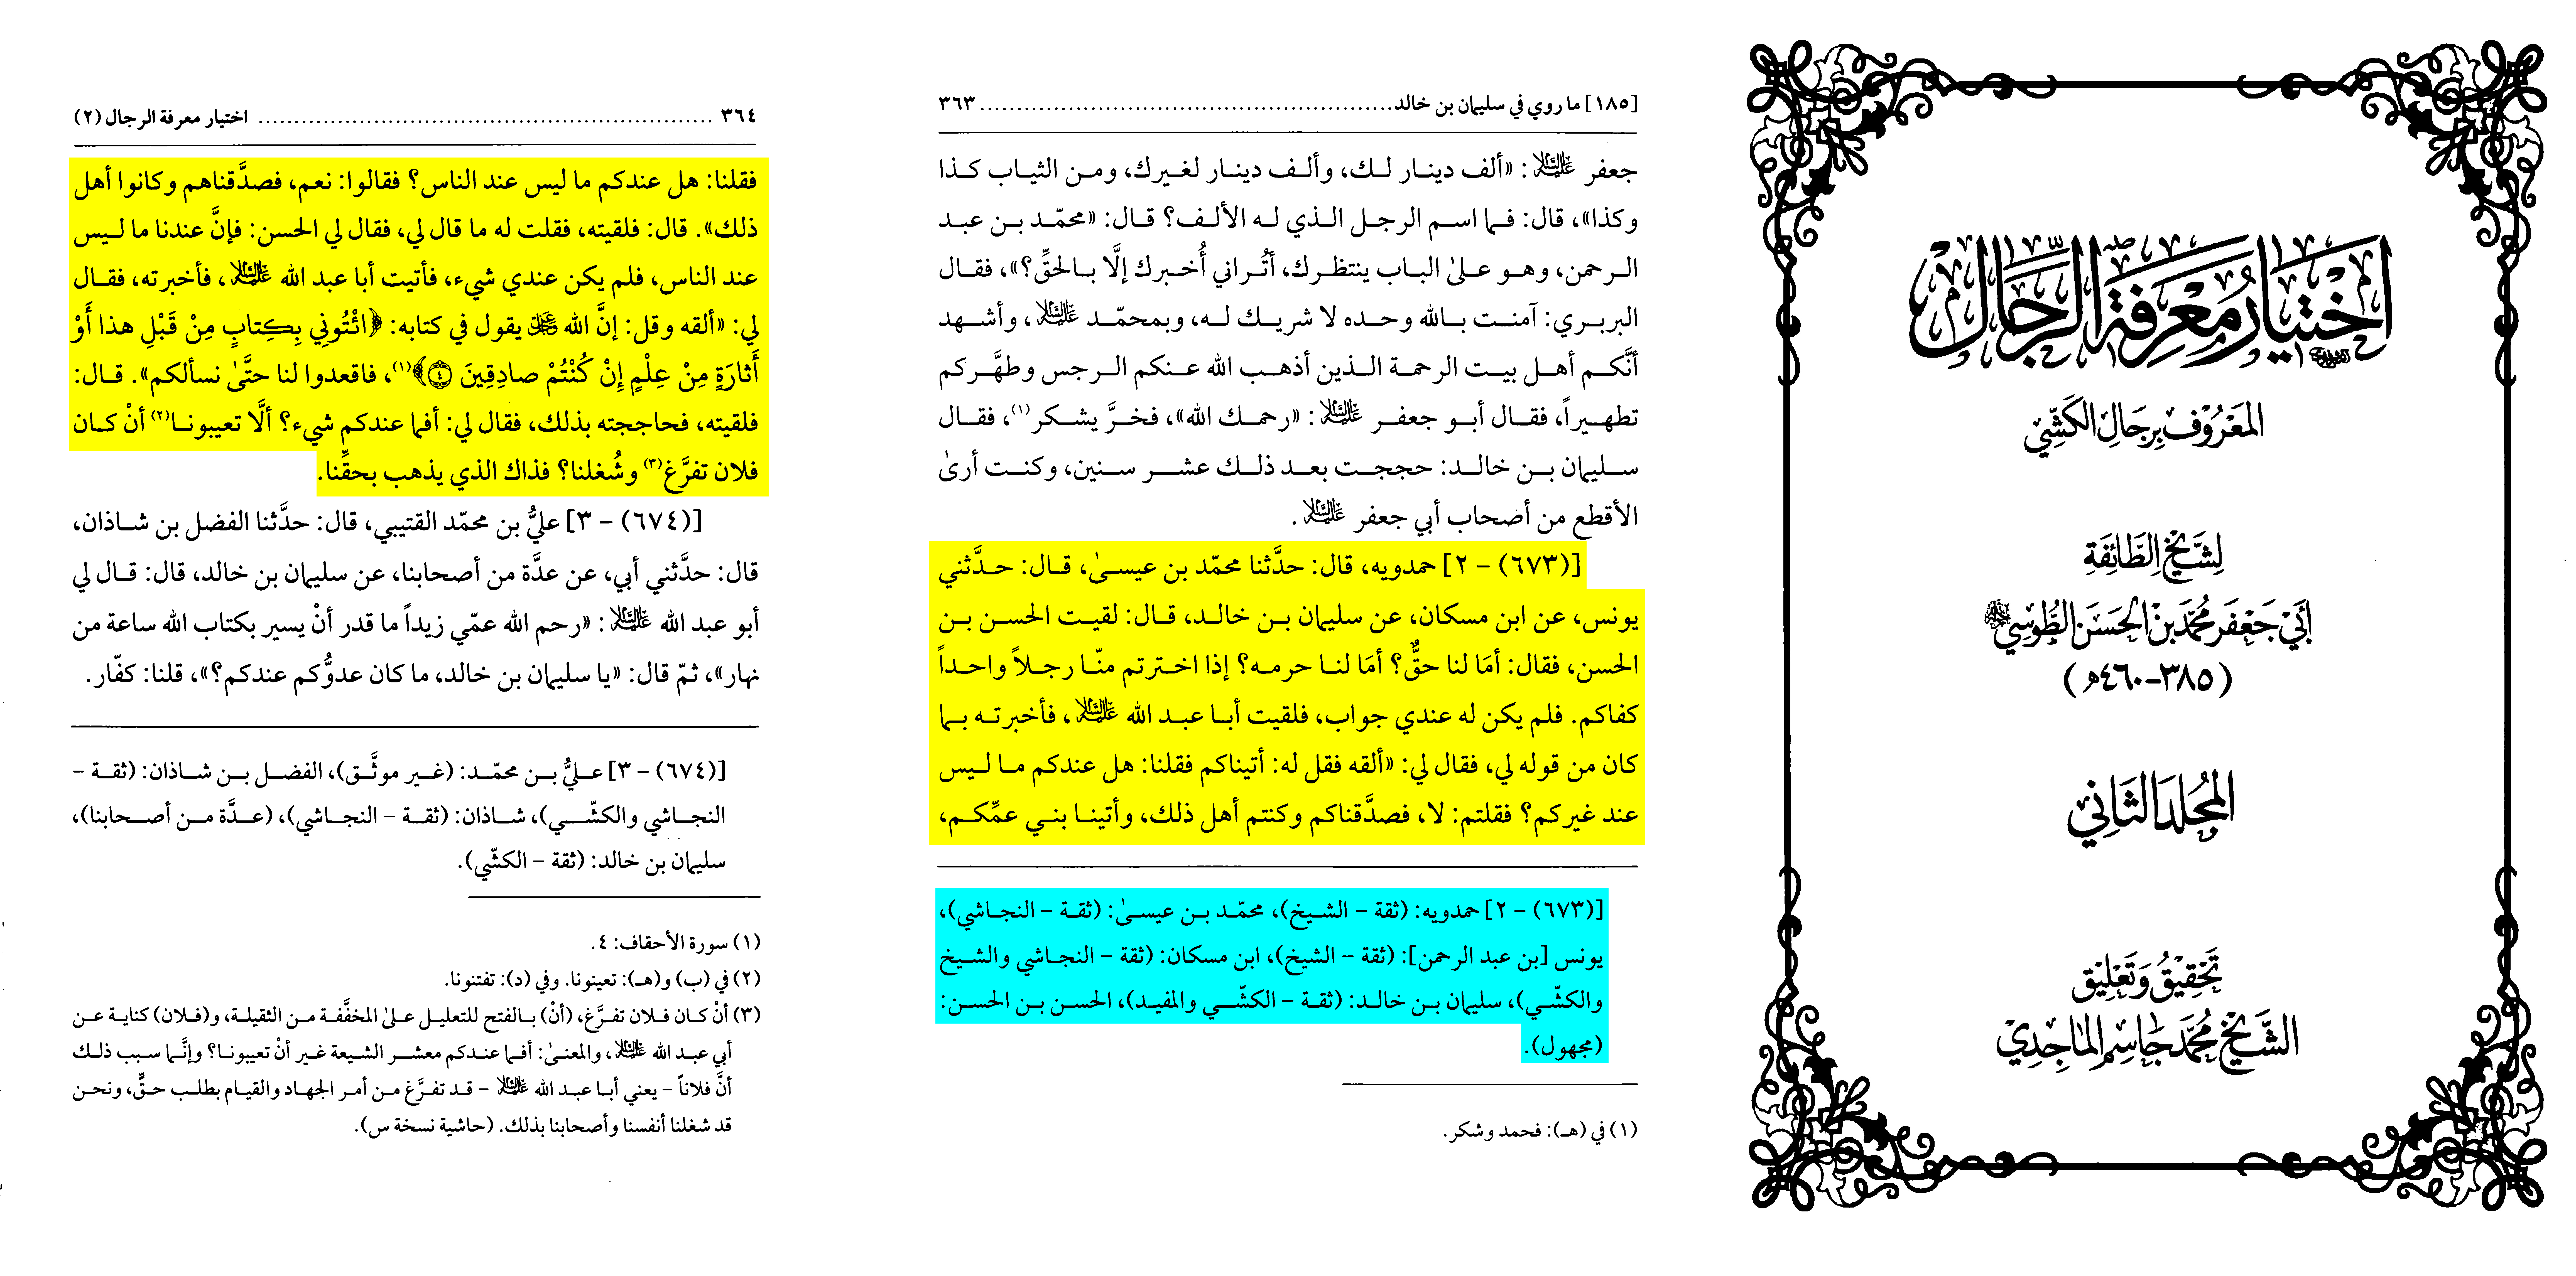 اختيار معرفة الرجال
المعروف برجال الكشي
لشيخ الطائفة
أبي جعفر محمد بن الحسن الطوسي
(٣٨٥-٤٦٠هـ)
المجلد الثاني
تحقيق وتعليق
الشيخ محمد جاسم الماجدي
[١٨٥] ما روي في سليمان بن خالد ........ ٣٦٣
جعفر عليه السلام: «ألف دينار لك، وألف دينار لغيرك، ومن الثياب كذا
وكذا»، قال: فما اسم الرجل الذي له الألف؟ قال: «محمّد بن عبد
الرحمن، وهو علىٰ الباب ينتظرك، أتُراني أُخبرك إلَّا بالحقِّ؟»، فقال
البربري: آمنت بالله وحده لا شريك له، وبمحمّد عليه السلام، وأشهد
أنَّكم أهل بيت الرحمة الذين أذهب الله عنكم الرجس وطهَّركم
تطهيراً، فقال أبو جعفر عليه السلام: «رحمك الله»، فخرَّ يشكر(١)، فقال
سليمان بن خالد: حججت بعد ذلك عشر سنين، وكنت أرىٰ
الأقطع من أصحاب أبي جعفر عليه السلام.
[(٦٧٣) - ٢] حمدويه، قال: حدَّثنا محمّد بن عيسىٰ، قال: حدَّثني
يونس، عن ابن مسكان، عن سليمان بن خالد، قال: لقيت الحسن بن
الحسن، فقال: أمَا لنا حقٌّ؟ أمَا لنا حرمه؟ إذا اخترتم منّا رجلاً واحداً
كفاكم. فلم يكن له عندي جواب، فلقيت أبا عبد الله عليه السلام، فأخبرته بما
كان من قوله لي، فقال لي: «ألقه فقل له: أتيناكم فقلنا: هل عندكم ما ليس
عند غيركم؟ فقلتم: لا، فصدَّقناكم وكنتم أهل ذلك، وأتينا بني عمِّكم،
[(٦٧٣) - ٢] حمدويه: (ثقة - الشيخ)، محمّد بن عيسىٰ: (ثقة - النجاشي)،
يونس [بن عبد الرحمن]: (ثقة - الشيخ)، ابن مسكان: (ثقة - النجاشي والشيخ
والكشّي)، سليمان بن خالد: (ثقة - الكشّي والمفيد)، الحسن بن الحسن:
(مجهول).
(١) في (هـ): فحمد وشكر.
٣٦٤ ........ اختيار معرفة الرجال (٢)
فقلنا: هل عندكم ما ليس عند الناس؟ فقالوا: نعم، فصدَّقناهم وكانوا أهل
ذلك». قال: فلقيته، فقلت له ما قال لي، فقال لي الحسن: فإنَّ عندنا ما ليس
عند الناس، فلم يكن عندي شيء، فأتيت أبا عبد الله عليه السلام، فأخبرته، فقال
لي: «ألقه وقل: إنَّ الله عز وجل يقول في كتابه: ﴿ائْتُونِي بِكِتابٍ مِنْ قَبْلِ هذا أَوْ
أَثارَةٍ مِنْ عِلْمٍ إِنْ كُنْتُمْ صادِقِينَ ٤﴾(١)، فاقعدوا لنا حتَّىٰ نسألكم». قال:
فلقيته، فحاججته بذلك، فقال لي: أفما عندكم شيء؟ ألَّا تعيبونا(٢) أنْ كان
فلان تفرَّغ(٣) وشُغلنا؟ فذاك الذي يذهب بحقِّنا.
[(٦٧٤) - ٣] عليُّ بن محمّد القتيبي، قال: حدَّثنا الفضل بن شاذان،
قال: حدَّثني أبي، عن عدَّة من أصحابنا، عن سليمان بن خالد، قال: قال لي
أبو عبد الله عليه السلام: «رحم الله عمّي زيداً ما قدر أنْ يسير بكتاب الله ساعة من
نهار»، ثمّ قال: «يا سليمان بن خالد، ما كان عدوُّكم عندكم؟»، قلنا: كفّار.
[(٦٧٤) - ٣] عليُّ بن محمّد: (غير موثَّق)، الفضل بن شاذان: (ثقة -
النجاشي والكشّي)، شاذان: (ثقة - النجاشي)، (عدَّة من أصحابنا)،
سليمان بن خالد: (ثقة - الكشّي).
(١) سورة الأحقاف: ٤.
(٢) في (ب) و(هـ): تعينونا. وفي (د): تفتنونا.
(٣) أنْ كان فلان تفرَّغ، (أنْ) بالفتح للتعليل علىٰ المخفَّفة من الثقيلة، و(فلان) كناية عن
أبي عبد الله عليه السلام، والمعنىٰ: أفما عندكم معشر الشيعة غير أنْ تعيبونا؟ وإنَّما سبب ذلك
أنَّ فلاناً - يعني أبا عبد الله عليه السلام - قد تفرَّغ من أمر الجهاد والقيام بطلب حقٍّ، ونحن
قد شغلنا أنفسنا وأصحابنا بذلك. (حاشية نسخة س).